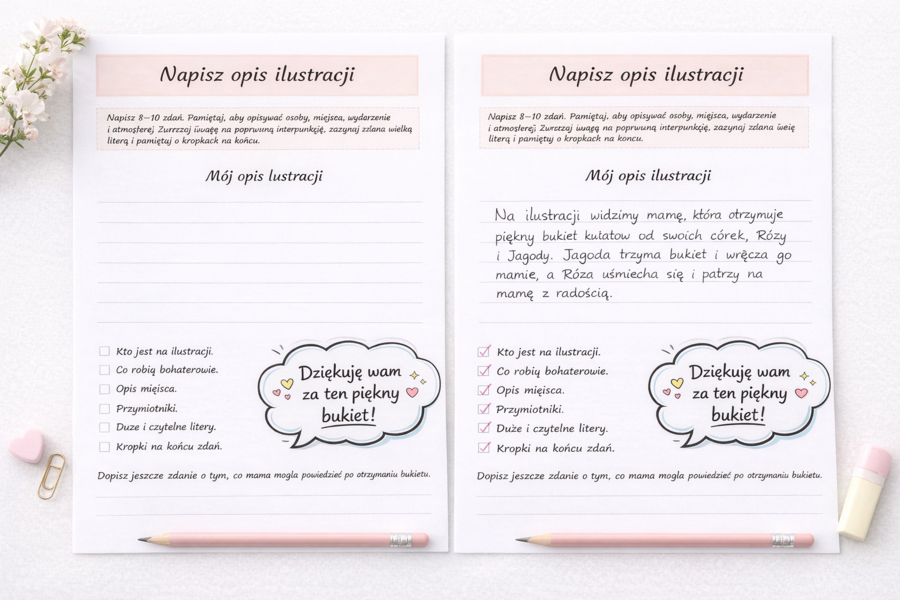 Napisz opis ilustracji
Napisz 8–10 zdań. Pamiętaj, aby opisywać osoby, miejsca, wydarzenie
i atmosferę. Zurrzaj iuwagę na poprwuną interpunkcję, zazynaj zdana wielką
literą i pamiętuj o kropkach na końcu.
Mój opis lustracji
Kto jest na ilustracji.
Co robią bohaterowie.
Opis miejsca.
Przymiotniki.
Duze i czytelne litery.
Kropki na końcu zdań.
Dziękuję wam
za ten piękny
bukiet!
Dopisz jeszcze zdanie o tym, co mama mogla powiedzieć po otrzymaniu bukietu.
Napisz opis ilustracji
Napisz 8–10 zdań. Pamiętaj, aby opisywać osoby, miejsca, wydarzenie
i atmosferę. Zurzzaj uwagę na poprwuną interpunkcję, zazynaj zdana
literą i pamiętuj o kropkach na końcu.
Mój opis ilustracji
Na ilustracji widzimy mamę, która otrzymuje
piękny bukiet kułatow od swoich córek, Rózy
i Jagody. Jagoda trzyma bukiet i wręcza go
mamie, a Róza uśmiecha się i patrzy na
mamę z radością.
Kto jest na ilustracji.
Co robią bohaterowie.
Opis miejsca.
Przymiotniki.
Duże i czytelne litery.
Kropki na końcu zdań.
Dziękuję wam
za ten piękny
bukiet!
Dopisz jeszcze zdanie o tym, co mama mogla powiedzieć po otrzymaniu bukietu.